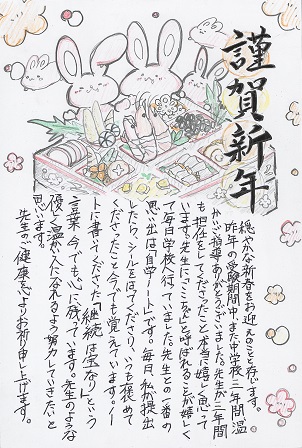 謹賀新年
穏やかな新春をお迎えのことと存じます。
昨年の受験期間中、また中学校三年間温
かいご指導ありがとうございました。先生が二年間
も担任をしてくださったこと本当に嬉しく思って
います。先生に「ここちゃん」と呼ばれることが嬉しく
て毎日学校へ行っていました。先生との一番の
思い出は自学ノートです。毎日、私が提出
したら、シールをはってくださり、いつも褒めて
くださったこと今でも覚えています。ノー
トに書いてくださった「継続は宝なり」という
言葉、今でも心に残っています。先生のような
優しく温かい人になれるよう努力していきたいと
思います。
先生のご健康を心よりお祈り申し上げます。